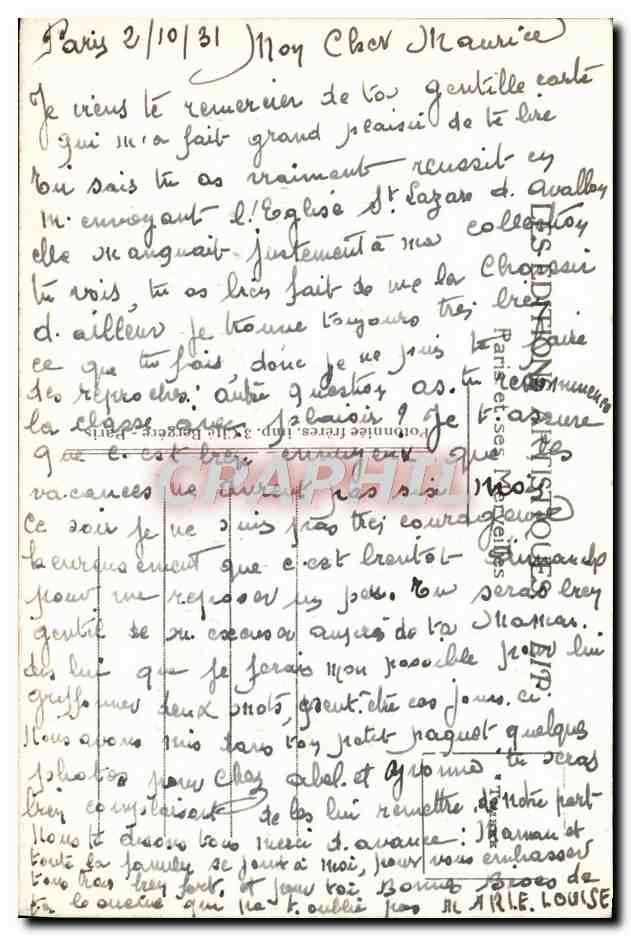 Paris 2/10/31 Mon Cher Maurice
Je viens te remercier de ta gentille carte
qui m'a fait grand plaisir de te lire
Tu sais tu as vraiment reussit en
m'envoyant l'Eglise St Lazare d'avallon
elle manquait justement à ma collection
tu vois, tu as bien fait de me la Choisir
d'ailleur je trouve toujours très bien
ce que tu fais, donc je ne puis te faire
des reproches. autre question as-tu recommencer
la classe avec plaisir? Je t'assure
que c'est bien ennuyeux que les
vacances ne durent pas six mois
Ce soir je ne suis pas très courageuse
heureusement que c'est bientot dimanche
pour me reposer un peu. Tu seras bien
gentil de m'excuser auprès de ta Maman.
dis lui que je ferais mon possible pour lui
griffonner deux mots, peut-être ces jours-ci.
Nous avons mis dans ton petit paquet quelques
photos pour Chez abel et Yvonne, tu seras
bien complaisant de les lui remettre de notre part
Nous te disons tous merci d'avance: Maman et
toute la famille se joint à moi, pour vous embrasser
tous trois bien fort. et pour toi Bonnes Bises de
ta cousine qui ne t'oublie pas MARIE. LOUISE
LES EDITIONS ARTISTIQUES LIP
Paris et ses Merveilles
Potonniée frères, imp. 3 Cité Bergère - Paris
CRAPHIL